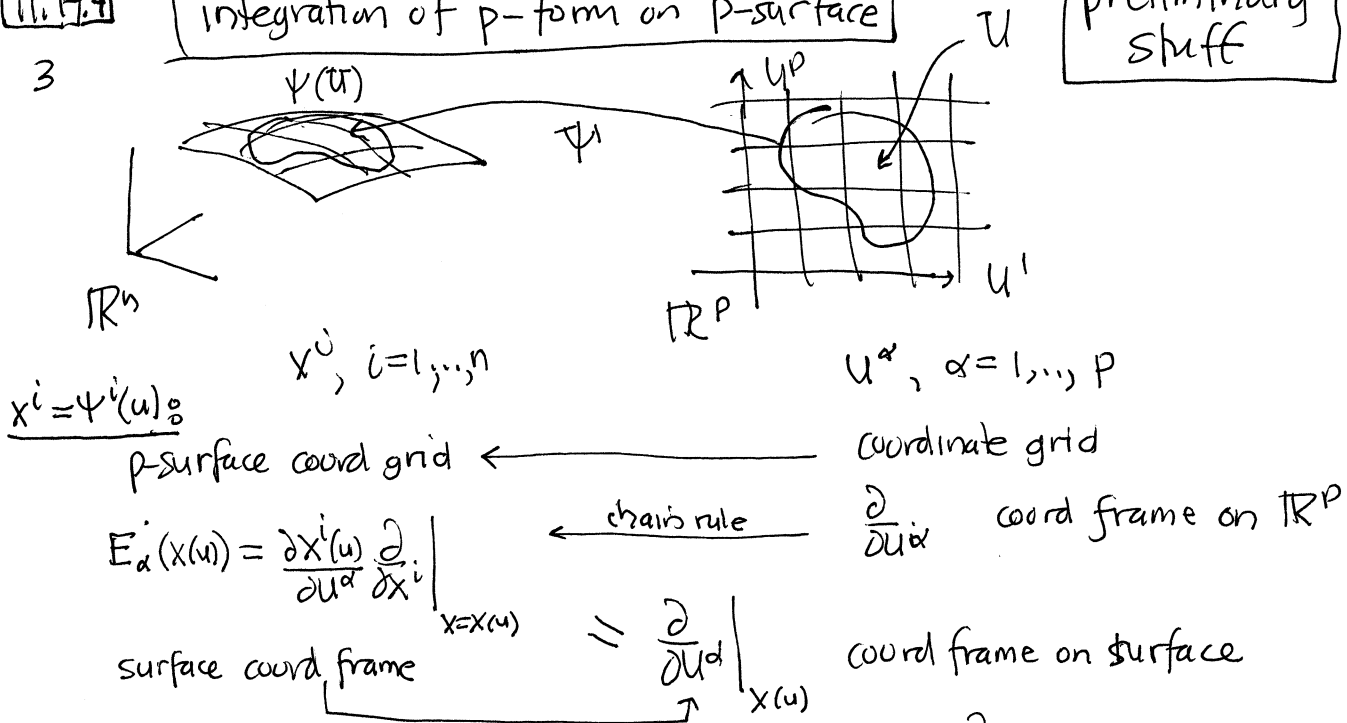 integration of p-form on p-surface
preliminary
stuff
3
Ψ(U)
Ψ
U
u^p
u^1
ℝ^n
ℝ^p
x^i, i=1,..,n
u^α, α=1,.., p
x^i = Ψ^i(u):
p-surface coord grid ← coordinate grid
E_α(x(u)) = ∂x^i(u)/∂u^α ∂/∂x^i |_{x=x(u)} ← chain rule ∂/∂u^α coord frame on ℝ^p
surface coord frame = ∂/∂u^α |_{x(u)} coord frame on surface